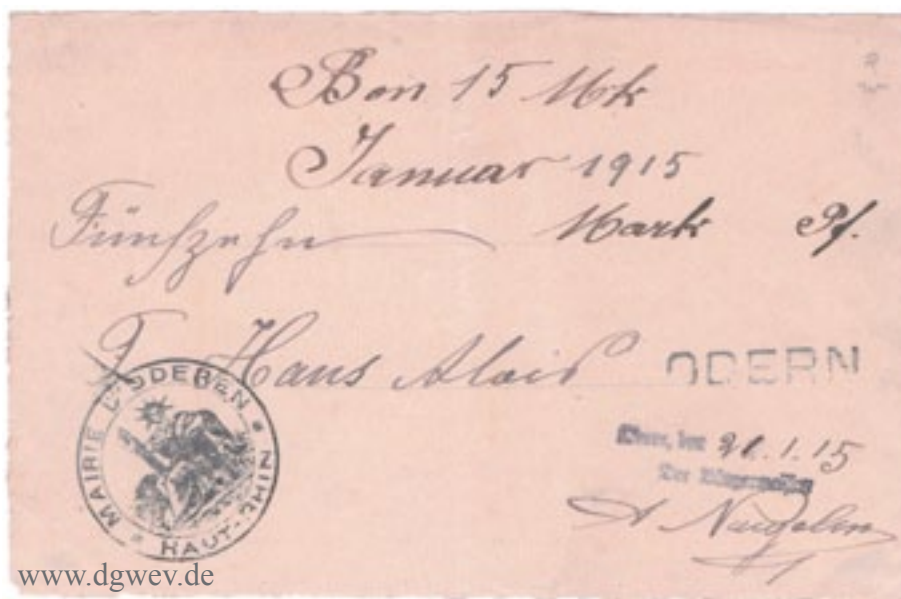 Bon 15 Mk
Januar 1915
Fünfzehn Mark Pf.
Hans Alois
ODERN
MAIRIE D'ODEREN * HAUT-RHIN *
den 21.1.15
Der Bürgermeister
www.dgwev.de